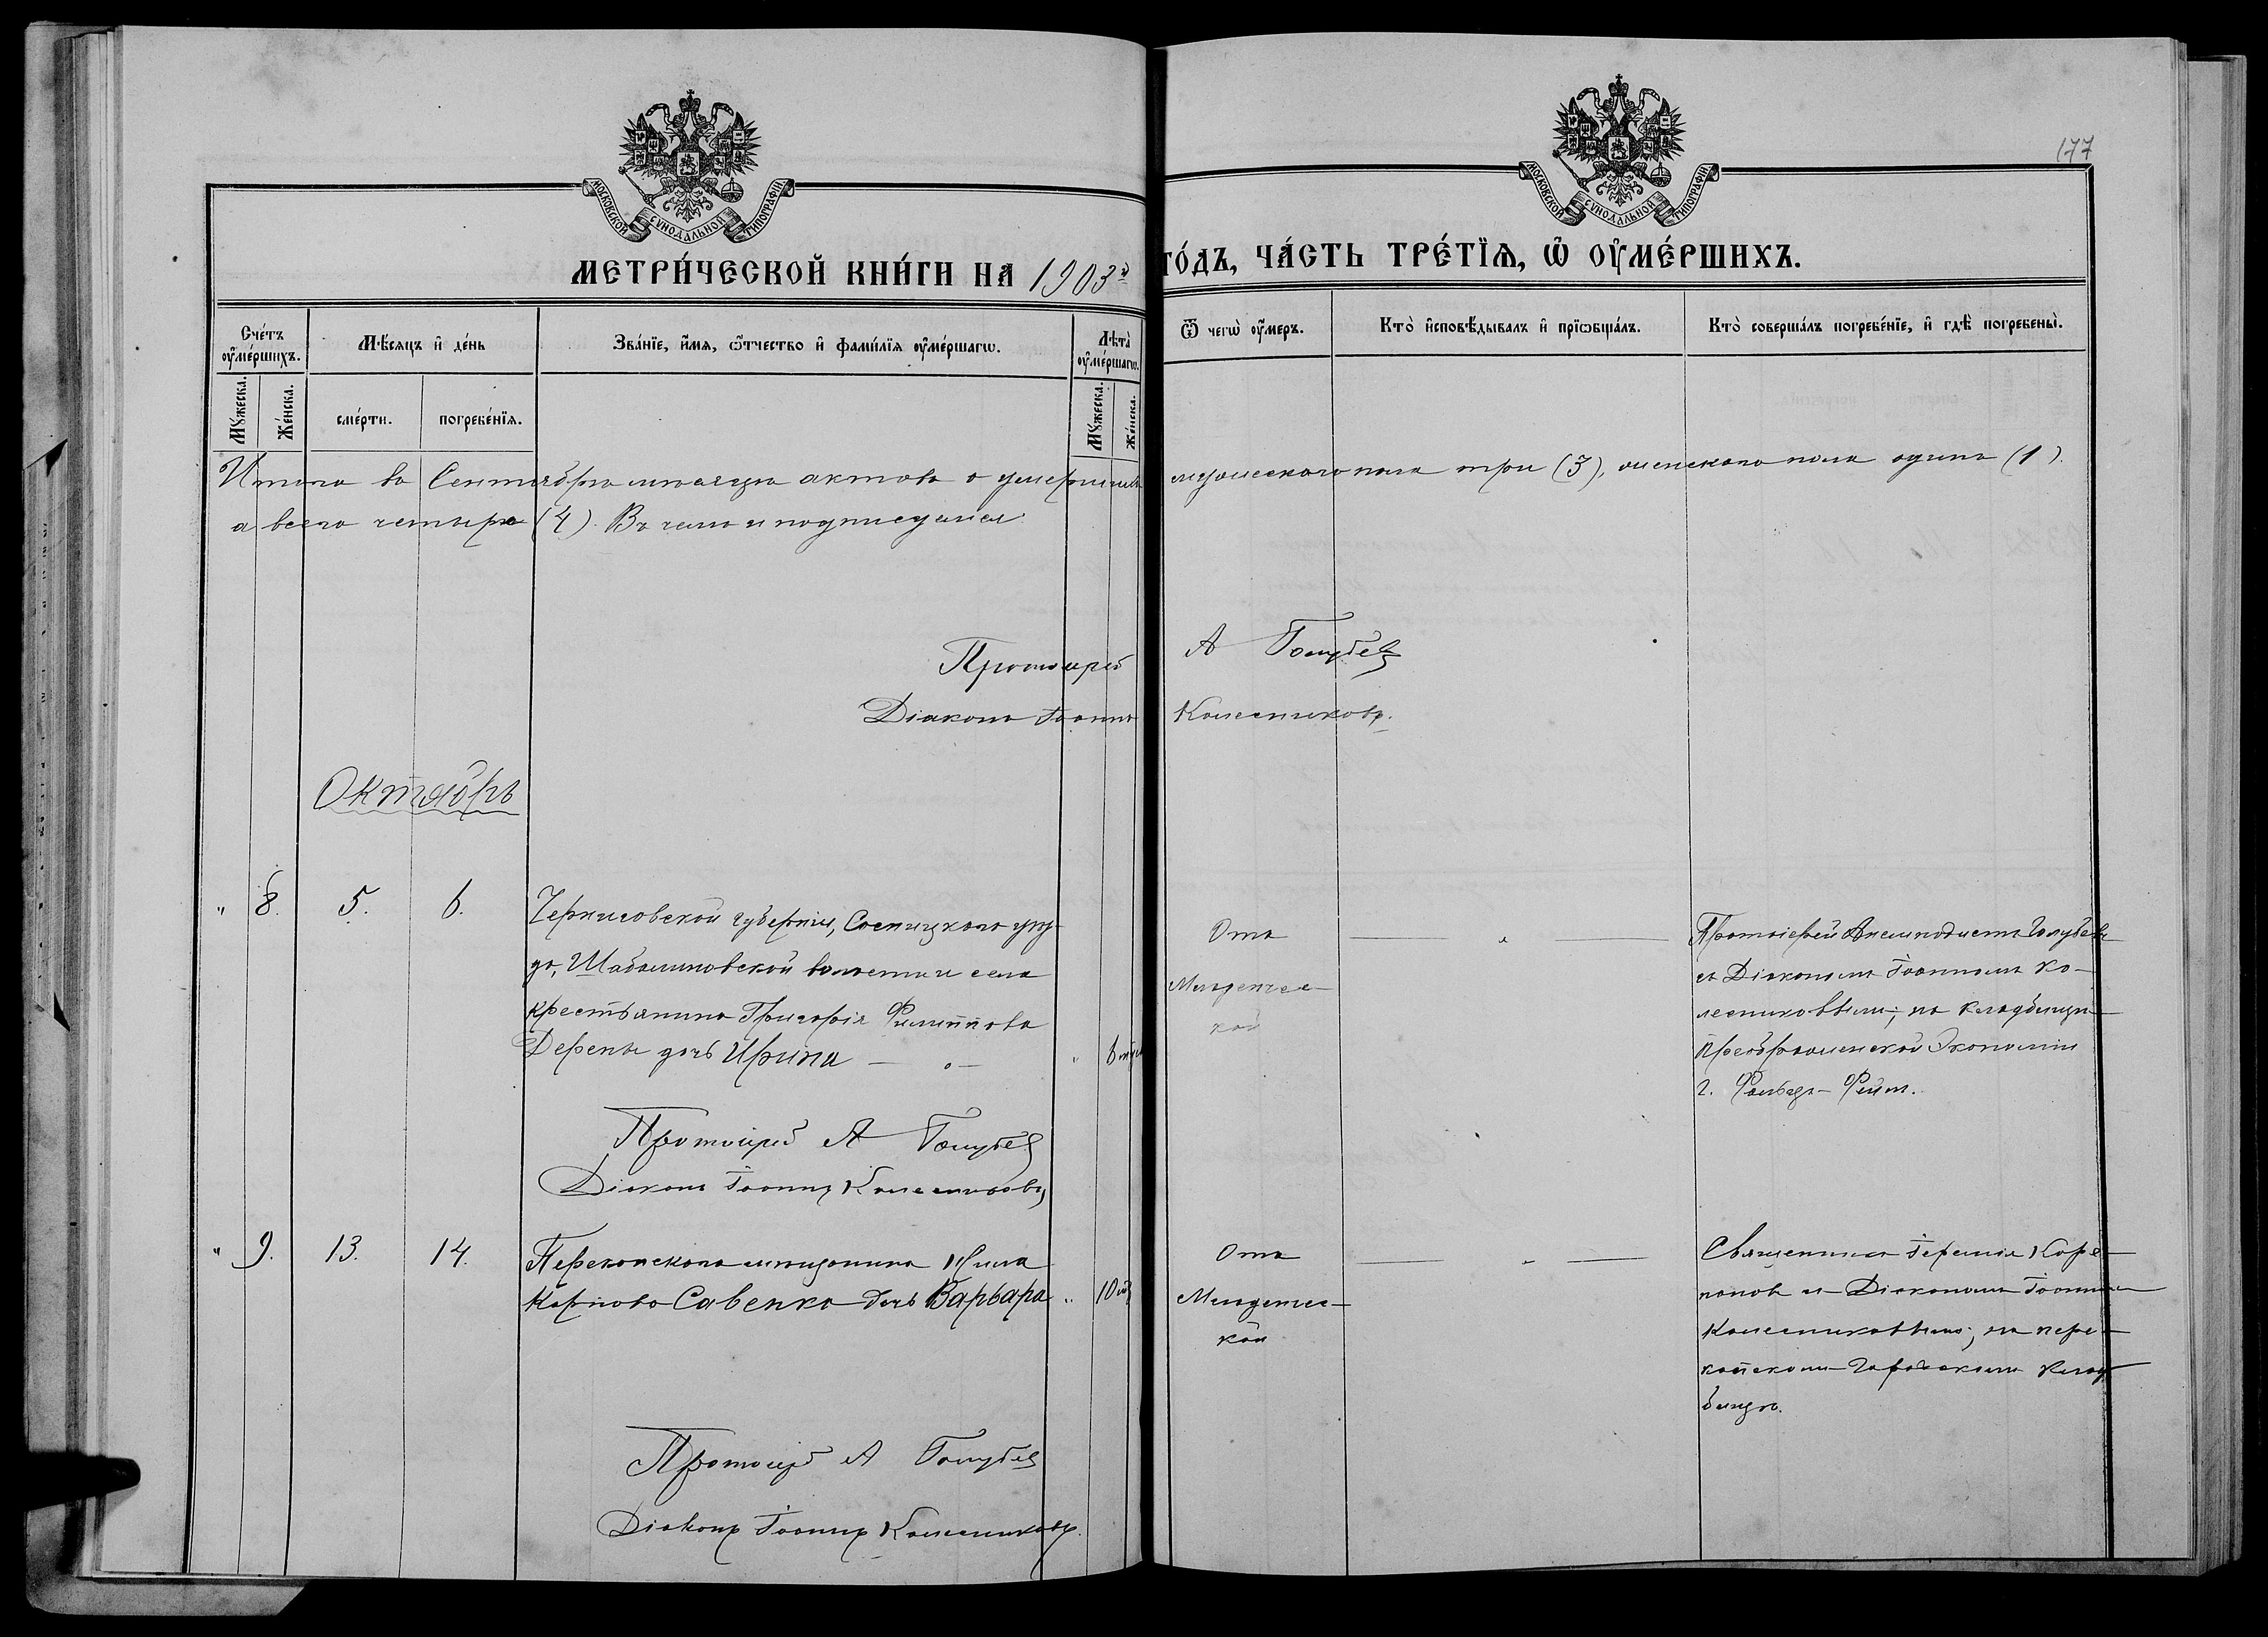 177
МОСКОВСКОЙ СѴНОДАЛЬНОЙ ТИПОГРАФІИ
МОСКОВСКОЙ СѴНОДАЛЬНОЙ ТИПОГРАФІИ
МЕТРИ́ЧЕСКОЙ КНИ́ГИ НА 1903й
ГО́ДЪ, ЧА́СТЬ ТРЕ́ТЇѦ, Ѡ҆ ОУ҆МЕ́РШИХЪ.
Сче́тъ оу҆ме́ршихъ.
Мꙋ́жеска.
Же́нска.
Мѣ́сяцъ и҆ де́нь
сме́рти.
погребе́нїѧ.
Зва́нїе, и҆́мѧ, ѻ҆́тчество и҆ фами́лїѧ оу҆ме́ршагѡ.
Лѣ́та оу҆ме́ршагѡ.
Мꙋ́жеска.
Же́нска.
Ѿ чегѡ̀ оу҆́меръ.
Кто̀ и҆сповѣ́дывалъ и҆ прїѡбща́лъ.
Кто̀ соверша́лъ погребе́нїе, и҆ гдѣ̀ погребены̀.
Итого въ Сентябрѣ мѣсяцѣ актовъ о умершихъ мужескаго пола три (3), женскаго пола одинъ (1).
а всего четыре (4). Въ чемъ и подписуемся
Протоіерей А Голубев
Діаконъ Іоаннъ Колесниковъ.
Октябрь
" 8. 5. 6.
Черниговской губерніи, Сосницкаго уѣз-
да, Шабалиновской волости и села
крестьянина Григорія Филиппова
Дерепы дочь Ирина — " —
" 6 мѣс
Отъ
Младенчес-
кой
— " —
Протоіерей Анемподистъ Голубевъ
съ Діакономъ Іоанномъ Ко-
лесниковымъ; на кладбищѣ
Преображенской Экономіи
г. Фальцъ-Фейнъ.
Протоіерей А Голубев
Діаконъ Іоаннъ Колесниковъ
" 9. 13. 14.
Перекопскаго мѣщанина
Карпова Савенко дочь Варвара
" 10
Отъ
Младенчес-
кой
— " —
Священникъ Іеремія
и Діакономъ Іоанномъ
Колесниковымъ; на пере-
копскомъ Городскомъ клад-
бищѣ.
Протоіерей А Голубев
Діаконъ Іоаннъ Колесниковъ.